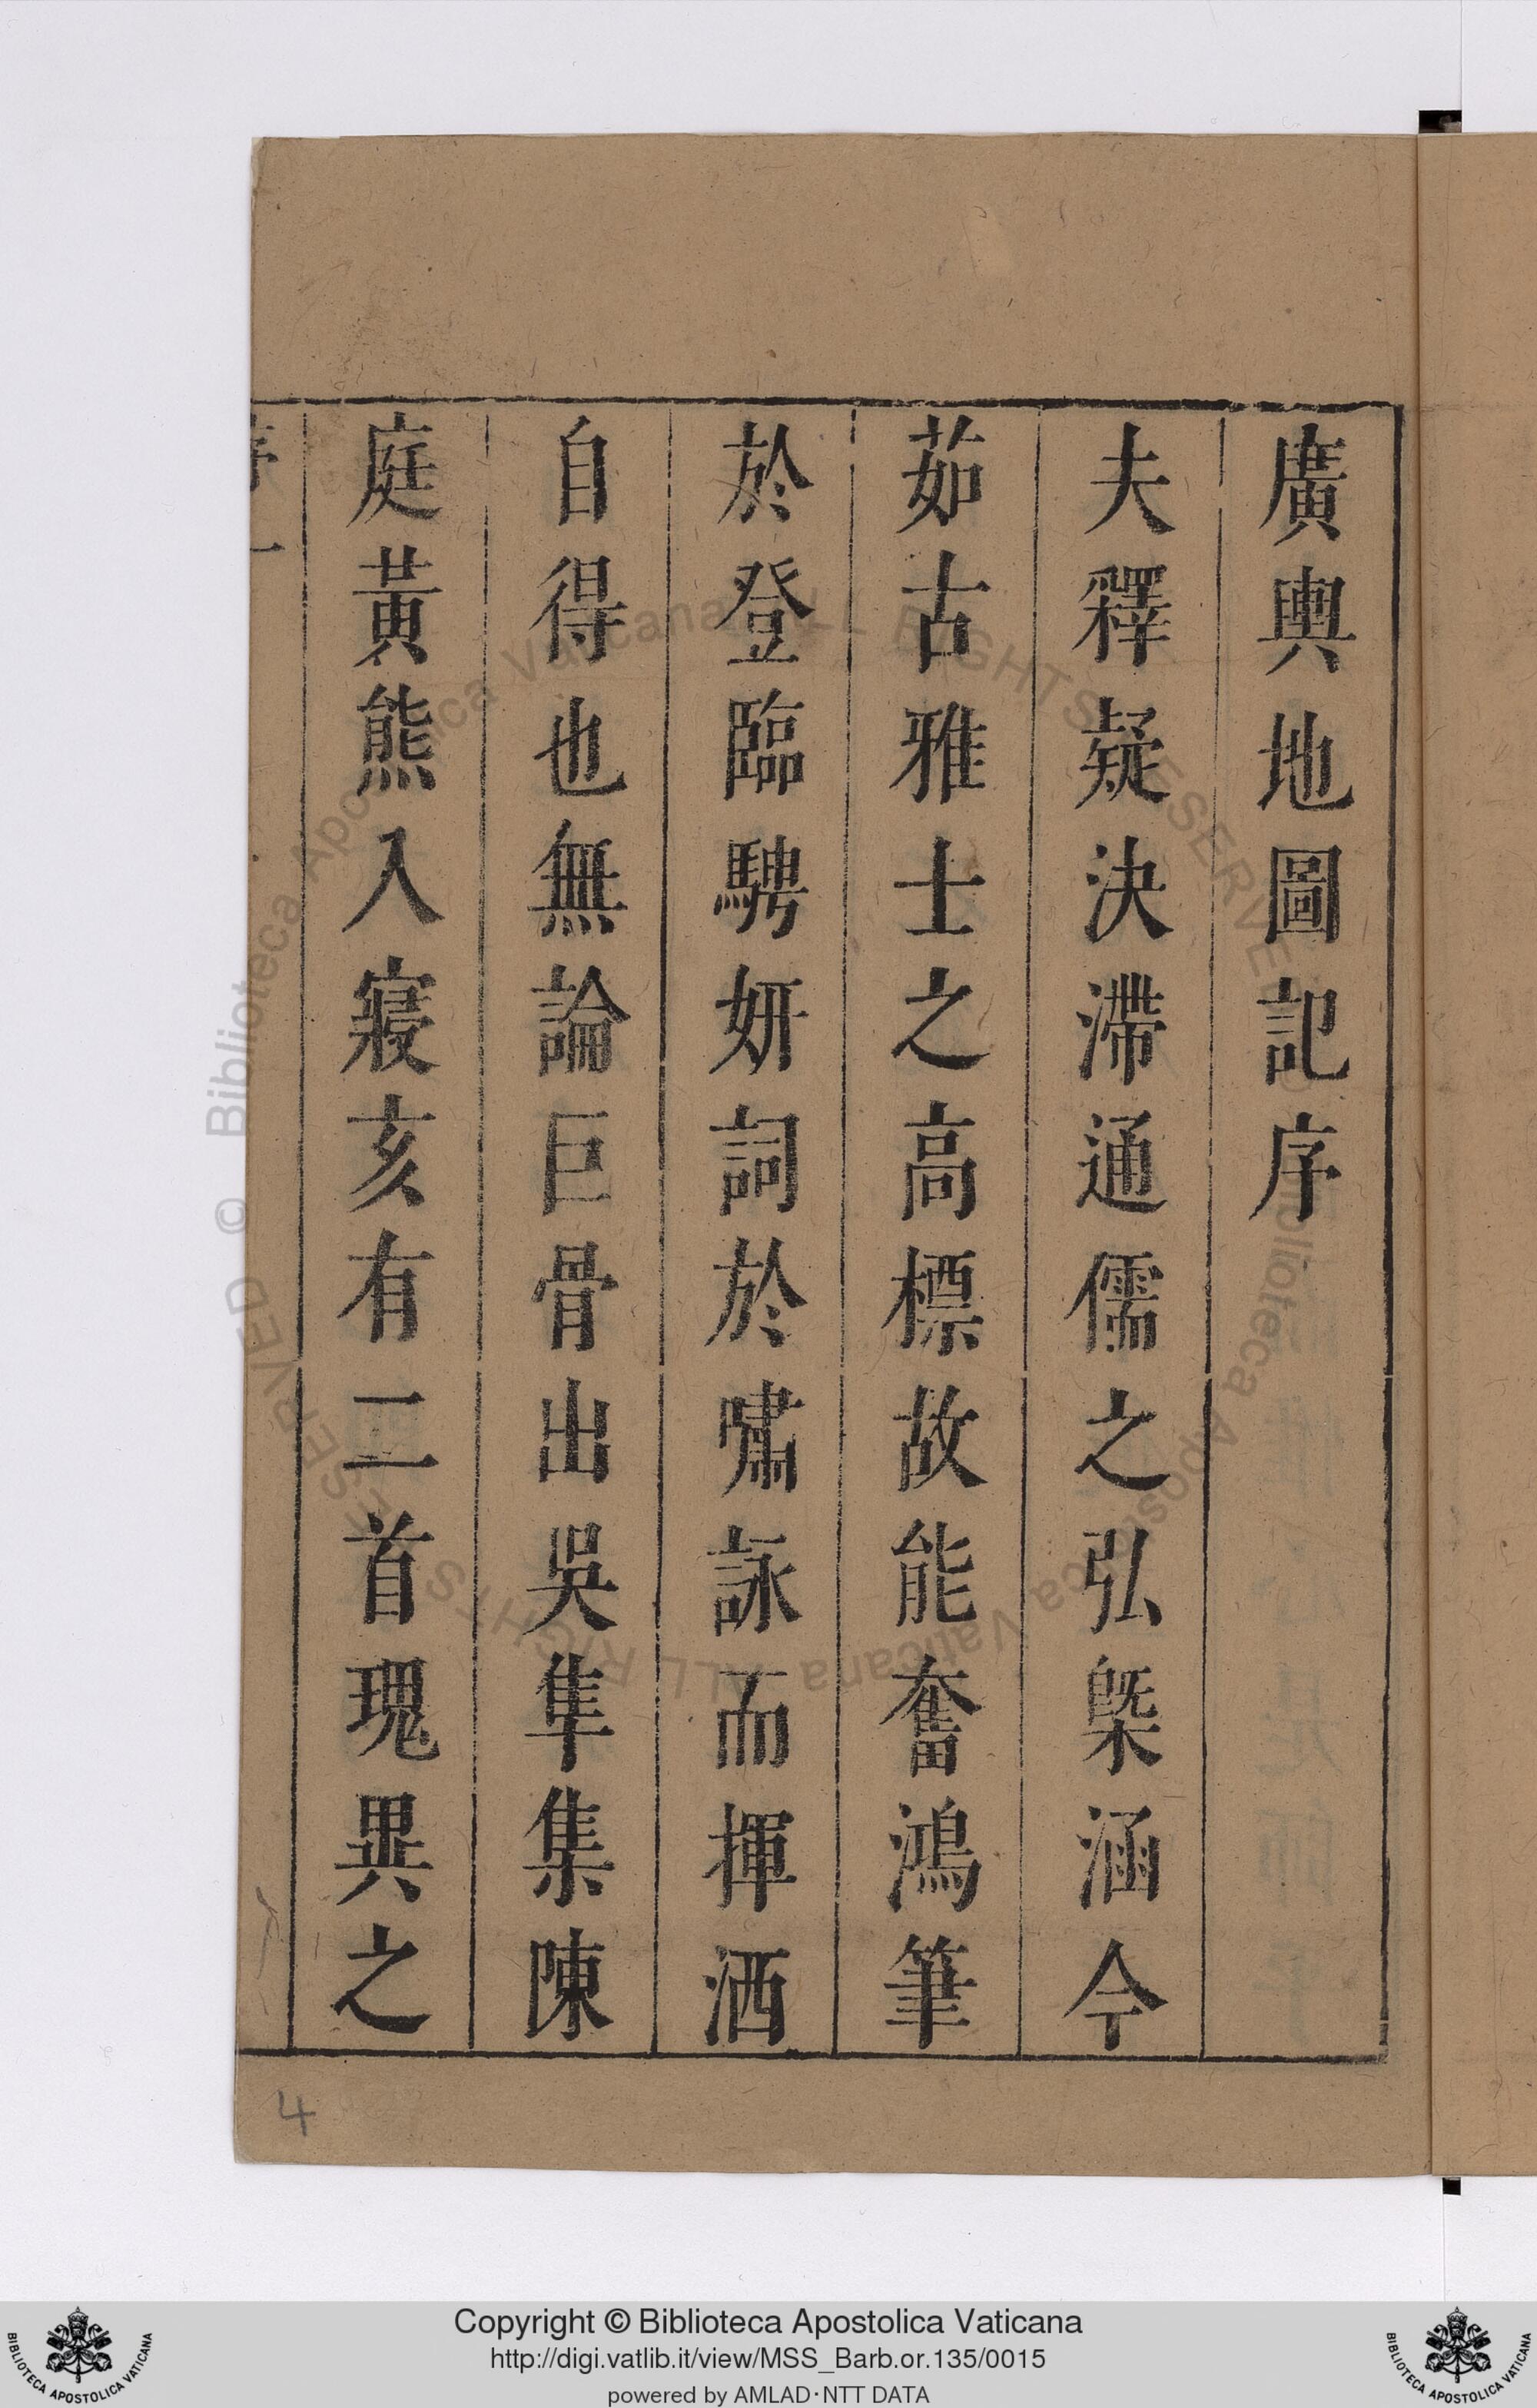 廣輿地圖記序
夫釋疑決滯通儒之弘槩涵今
茹古雅士之高標故能奮鴻筆
於登臨騁妍詞於嘯詠而揮洒
自得也無論巨骨出吳隼集陳
庭黃熊入寢亥有二首瑰異之
一
4
Copyright © Biblioteca Apostolica Vaticana
http://digi.vatlib.it/view/MSS_Barb.or.135/0015
powered by AMLAD·NTT DATA
BIBLIOTECA APOSTOLICA VATICANA
BIBLIOTECA APOSTOLICA VATICANA